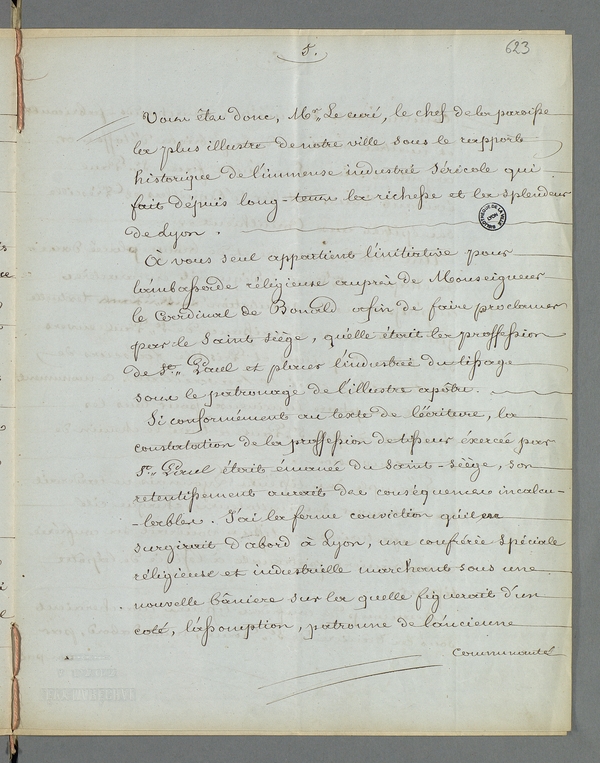 5.
623
Vous êtes donc, Mr. Le curé, le chef de la paroisse
la plus illustre de notre ville sous le rapport
historique de l'immense industrie séricole qui
fait dépuis long-tems la richesse et la splendeur
de Lyon.
À vous seul appartient l'initiative pour
l'ambassade réligieuse auprès de Monseigneur
le Cardinal de Bonald afin de faire proclamer
par le Saint Siège, quélle était la proffession
de St. Paul et placer l'industrie du tissage
sous le patronage de l'illustre apôtre.
Si conformément au texte de l'écriture, la
constatation de la proffession de tisseur éxercée par
St. Paul était émanée du Saint-Siège, son
retentissement aurait des conséquences incalcu-
-lables. J'ai la ferme conviction qu'il
surgirait d'abord à Lyon, une confrérie spéciale
réligieuse et industrielle marchant sous une
nouvelle bâniere sur la quelle figurerait d'un
coté, l'assomption, patronne de l'ancienne
communauté